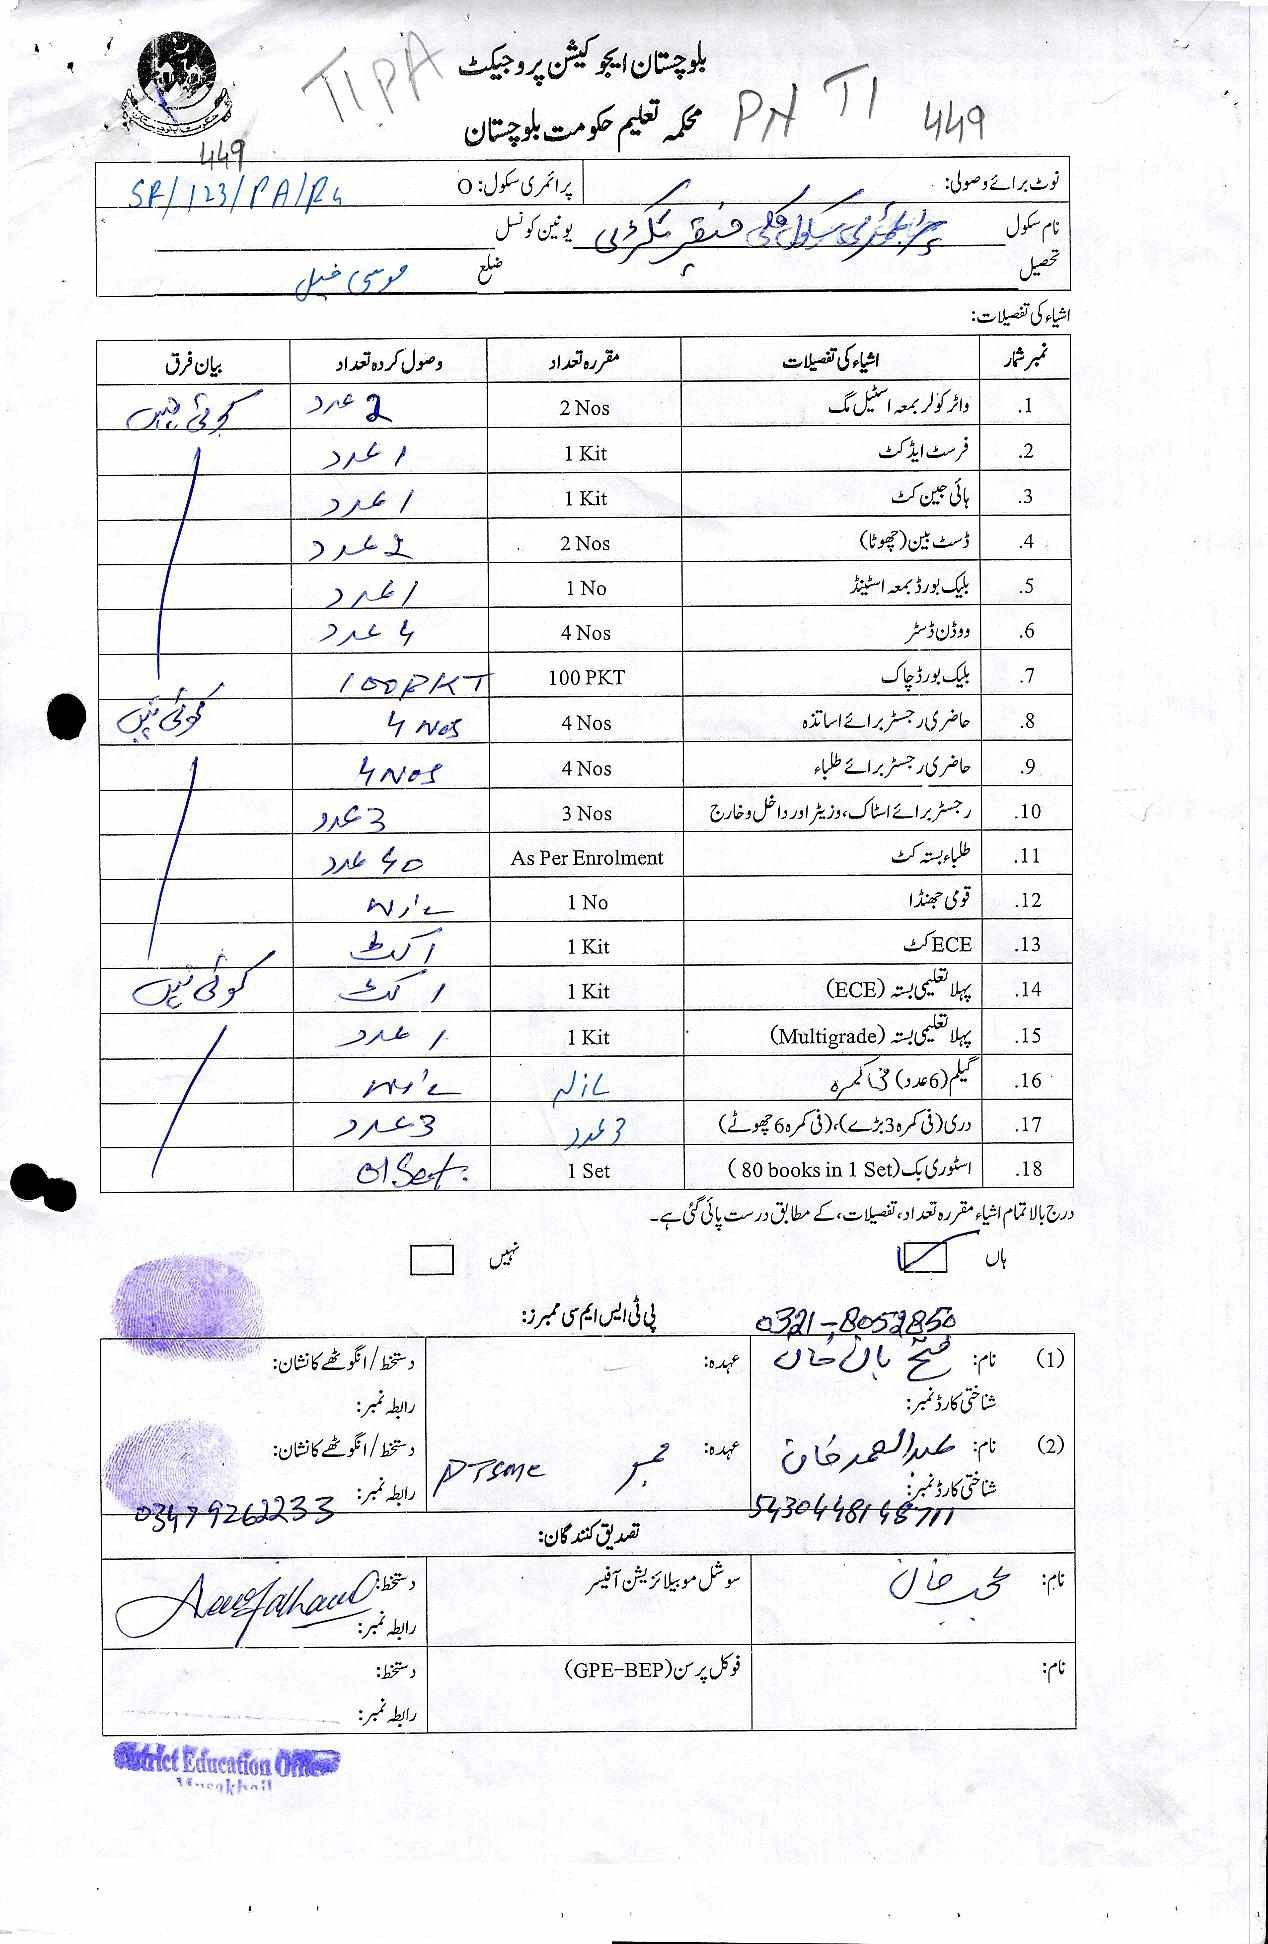 TIPA
بلوچستان ایجوکیشن پروجیکٹ
محکمہ تعلیم حکومت بلوچستان
PN TI 449
449
نوٹ برائے وصولی: پرائمری سکول: O
نام سکول پرائمری سکول کلی یونین کونسل
تحصیل ضلع موسی خیل
اشیاء کی تفصیلات:
نمبر شمار اشیاء کی تفصیلات مقررہ تعداد وصول کردہ تعداد بیان فرق
1. واٹر کولر بمعہ اسٹیل مگ 2 Nos 2 عدد کوئی نہیں
2. فرسٹ ایڈ کٹ 1 Kit 1 عدد
3. ہائی جین کٹ 1 Kit 1 عدد
4. ڈسٹ بین (چھوٹا) 2 Nos 2 عدد
5. بلیک بورڈ بمعہ اسٹینڈ 1 No 1 عدد
6. ووڈن ڈسٹر 4 Nos 4 عدد
7. بلیک بورڈ چاک 100 PKT 100 PKT
8. حاضری رجسٹر برائے اساتذہ 4 Nos 4 Nos کوئی نہیں
9. حاضری رجسٹر برائے طلباء 4 Nos 4 Nos
10. رجسٹر برائے اسٹاک، وزیٹر اور داخل و خارج 3 Nos 3 عدد
11. طلباء بستہ کٹ As Per Enrolment 40 عدد
12. قومی جھنڈا 1 No Nil
13. ECE کٹ 1 Kit 1 کٹ
14. پہلا تعلیمی بستہ (ECE) 1 Kit 1 کٹ کوئی نہیں
15. پہلا تعلیمی بستہ (Multigrade) 1 Kit 1 عدد
16. گیلم (6 عدد) فی کمرہ Nil
17. دری (فی کمرہ 3 بڑے)، (فی کمرہ 6 چھوٹے) 3 عدد 3 عدد
18. اسٹوری بک (80 books in 1 Set) 1 Set 01 Set.
درج بالا تمام اشیاء مقررہ تعداد، تفصیلات، کے مطابق درست پائی گئی ہے۔
ہاں نہیں
پی ٹی ایس ایم سی ممبرز:
0321-8052850
(1) نام: خان عہدہ: دستخط/انگوٹھے کا نشان:
شناختی کارڈ نمبر: رابطہ نمبر:
(2) نام: عبدالصمد خان عہدہ: ممبر PTSMC دستخط/انگوٹھے کا نشان:
شناختی کارڈ نمبر: رابطہ نمبر:
03479262233
تصدیق کنندگان:
نام: خان سوشل موبیلائزیشن آفیسر دستخط:
رابطہ نمبر:
نام: فوکل پرسن (GPE-BEP) دستخط:
رابطہ نمبر:
District Education Officer
Musakhail